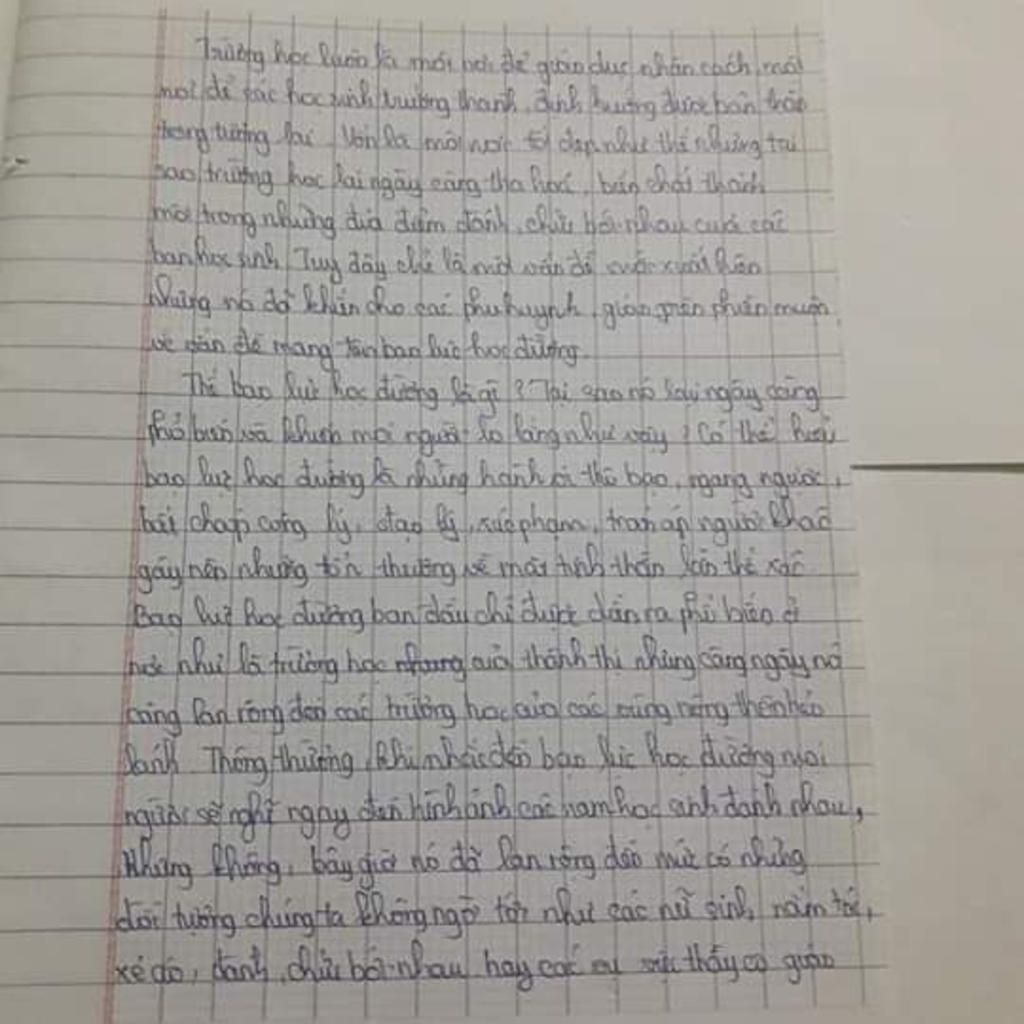 Trường học luôn là môi nơi để giáo dục nhân cách, một
nơi để các học sinh trưởng thành, định hướng được bản thân
trong tương lai. Vốn là môi nơi tốt đẹp như thế nhưng tại
sao trường học lại ngày càng tha hoá, biến chất thành
một trong những địa điểm đánh, chửi bới nhau của các
bạn học sinh. Tuy đây chỉ là một vấn đề mới xuất hiện
nhưng nó đã khiến cho các phụ huynh, giáo viên phiền muộn
về vấn đề mang tên bạo lực học đường.
Thế bạo lực học đường là gì? Tại sao nó lại ngày càng
phổ biến và khiến mọi người lo lắng như vậy? Có thể hiểu
bạo lực học đường là những hành vi thô bạo, ngang ngược,
bất chấp công lý, đạo lý, xúc phạm, trấn áp người khác
gây nên những tổn thương về mặt tinh thần lẫn thể xác.
Bạo lực học đường ban đầu chỉ được diễn ra phổ biến ở
nơi như là trường học của thành thị nhưng càng ngày nó
càng lan rộng đến các trường học của các vùng nông thôn hẻo
lánh. Thông thường, khi nhắc đến bạo lực học đường mọi
người sẽ nghĩ ngay đến hình ảnh các nam học sinh đánh nhau,
Nhưng không, bây giờ nó đã lan rộng đến mức có những
đối tượng chúng ta không ngờ tới như các nữ sinh, nắm tóc,
xé áo, đánh, chửi bới nhau hay các thầy cô giáo